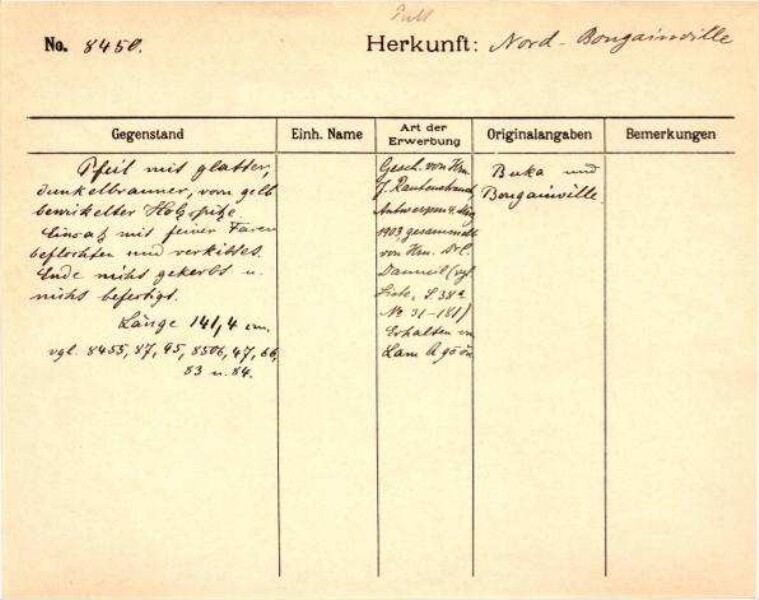 No. 8450.
Herkunft: Nord-Bougainville
Gegenstand
Einh. Name
Art der Erwerbung
Originalangaben
Bemerkungen
Pfeil mit glatter,
dunkelbrauner, vorn gelb
bewickelter Holzspitze.
Einsatz mit feiner Faser
beflochten und verkittet.
Ende nicht gekerbt u.
nicht befestigt.
Länge 141,4 cm.
vgl. 8455, 87, 95, 8506, 47, 66,
83 u. 84.
Gesch. von Hrn.
J. Rautenstrauch,
Antwerpen 4. Mrz
1903 gesammelt
von Hrn. Dr. C.
Danneil (vgl.
Liste, S. 38a
No 31-181)
Erhalten
Buka und
Bougainville.